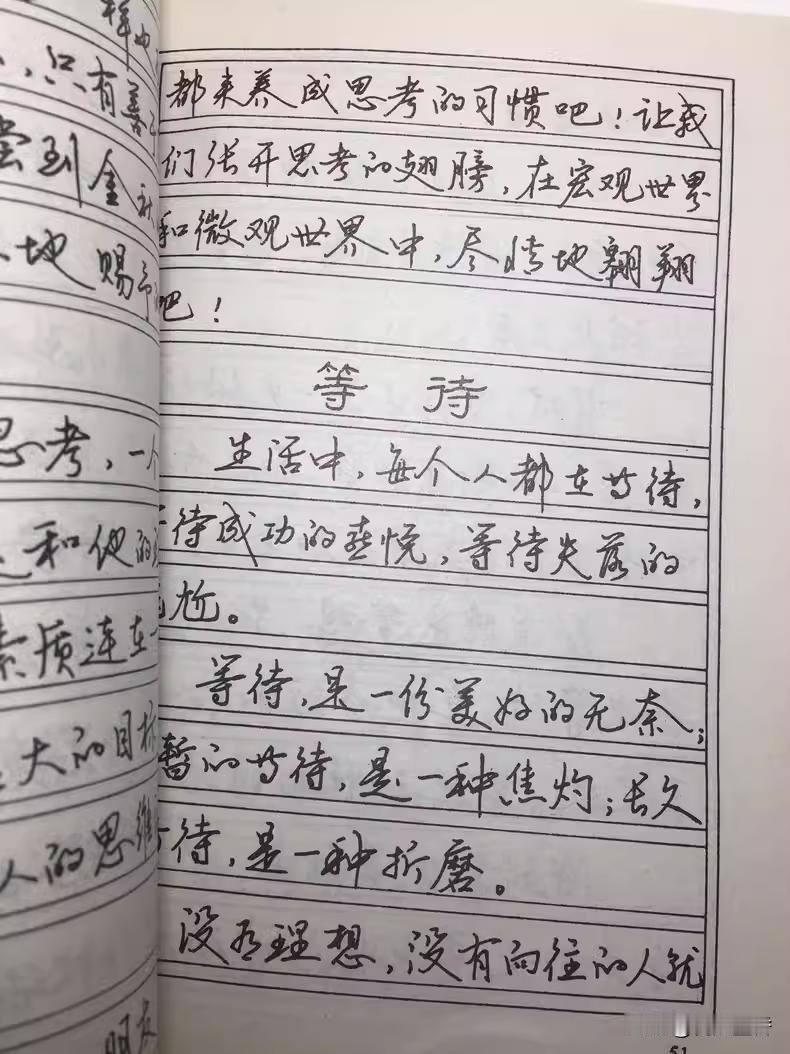 ，只有
尝到金秋
地赐予
思考，一个
和他的
素质连在一
大的目标
人的思维
朋友
都来养成思考的习惯吧！让我
们张开思考的翅膀，在宏观世界
和微观世界中，尽情地翱翔
吧！
等待
生活中，每个人都在等待，
等待成功的喜悦，等待失落的
尴尬。
等待，是一份美好的无奈；
暂的等待，是一种焦灼；长久
等待，是一种折磨。
没有理想，没有向往的人就
51